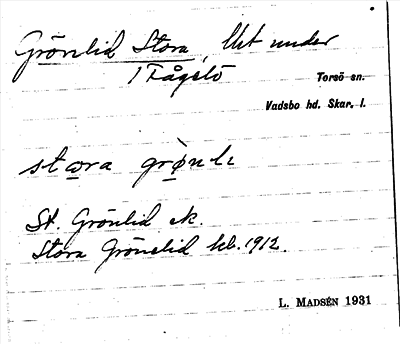 Grönlid Stora, Utt under
1 Fågelö
Torsö sn.
Vadsbo hd. Skar. l.
stora grønli
St. Grönlid ek.
Stora Grönelid hl. 1912.
L. MADSÉN 1931